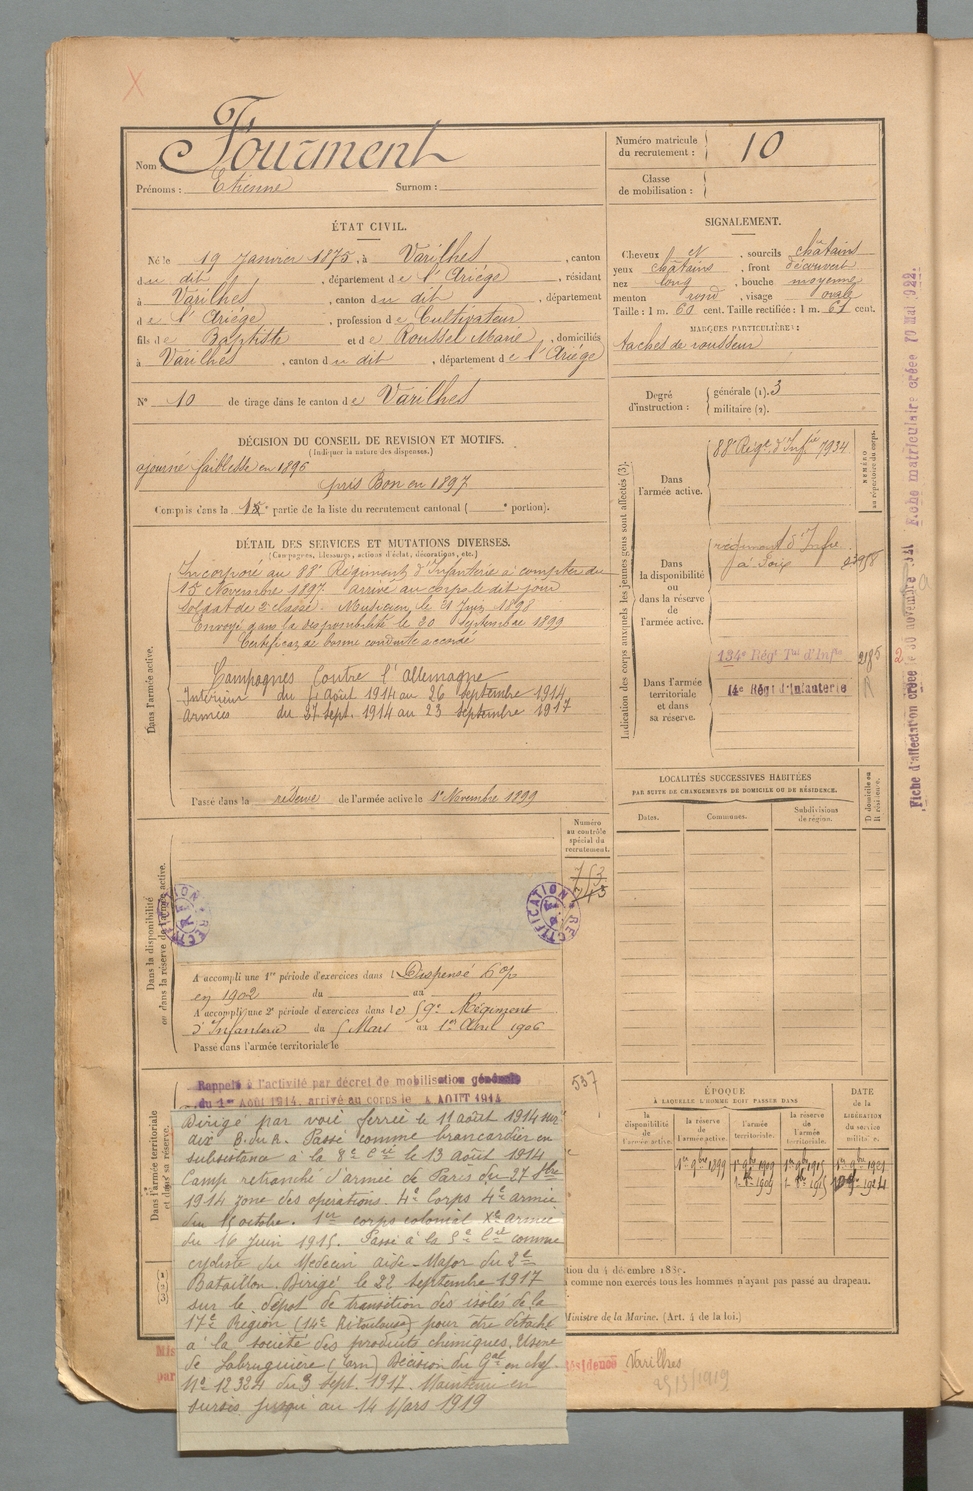 Nom : Fourment
Prénoms : Etienne Surnom :
Numéro matricule du recrutement : 10
Classe de mobilisation :
ÉTAT CIVIL.
Né le 19 Janvier 1875, à Varilhes, canton
du dit, département de l'Ariége, résidant
à Varilhes, canton du dit, département
de l'Ariége, profession de Cultivateur
fils de Baptiste et de Roussel Marie, domiciliés
à Varilhes, canton du dit, département de l'Ariége
N° 10 de tirage dans le canton de Varilhes
DÉCISION DU CONSEIL DE REVISION ET MOTIFS.
(Indiquer la nature des dispenses.)
ajourné faiblesse en 1896
pris Bon en 1897
Compris dans la partie de la liste du recrutement cantonal ( portion).
DÉTAIL DES SERVICES ET MUTATIONS DIVERSES.
(Campagnes, blessures, actions d'éclat, décorations, etc.)
Dans l'armée active.
Incorporé au 88e Régiment d'Infanterie à compter du
15 Novembre 1897. arrivé au corps le dit jour
soldat de 2e classe. Musicien le 21 Juin 1898
Envoyé dans la disponibilité le 20 Septembre 1899
Certificat de bonne conduite accordé
Campagnes Contre l'Allemagne
Intérieur du 4 août 1914 au 26 septembre 1914
Armées du 27 sept. 1914 au 23 septembre 1917
Passé dans la réserve de l'armée active le 1er Novembre 1899
Dans la disponibilité
ou dans la réserve de l'armée active.
Numéro
au contrôle
spécial du
recrutement.
753
745
RECTIFICATION
RECTIFICATION
A accompli une 1re période d'exercices dans l Dispensé
en 1902 du au
A accompli une 2e période d'exercices dans le 59e Régiment
d'Infanterie du 5 Mars au 1er Avril 1906
Passé dans l'armée territoriale le
Dans l'armée territoriale
et dans sa réserve.
Rappelé à l'activité par décret de mobilisation générale
du 1er Août 1914, arrivé au corps le 4 AOUT 1914
537
Dirigé par voie ferrée le 11 août 1914 sur
aux B. du R. Passé comme brancardier en
subsistance à la 8e Cie le 13 Août 1914
Camp retranché d'armée de Paris du 27 7bre
1914 zone des opérations. 4e Corps 4e armée
du 15 octobre. 1er corps colonial Xe armée
du 16 Juin 1915. Passé à la 5e Cie comme
cycliste du Médecin aide-Major du 2e
Bataillon. Dirigé le 22 septembre 1917
sur le dépôt de transition des isolés de la
17e Région (14e RI Toulouse) pour être détaché
à la société des produits chimiques, Usine
de Labruguière (Tarn) Décision du Gal en chef
N° 12324 du 3 sept. 1917. Maintenu en
sursis jusqu'au 14 Mars 1919
SIGNALEMENT.
Cheveux et, sourcils châtains
yeux châtains, front découvert
nez long, bouche moyenne
menton rond, visage ovale
Taille : 1 m. 60 cent. Taille rectifiée : 1 m. 61 cent.
MARQUES PARTICULIÈRES :
taches de rousseur
Degré d'instruction :
générale (1). 3
militaire (2).
Indication des corps auxquels les jeunes gens sont affectés (3).
NUMÉRO
au répertoire du corps.
Dans
l'armée active.
88e Régt d'Infie 7934
Dans
la disponibilité
ou
dans la réserve
de
l'armée active.
régiment d'Infie
à Foix
Dans l'armée
territoriale
et dans
sa réserve.
134e Régt Tal d'Infie 2186
14e Régt d'Infanterie
LOCALITÉS SUCCESSIVES HABITÉES
PAR SUITE DE CHANGEMENTS DE DOMICILE OU DE RÉSIDENCE.
D domicile ou
R résidence.
Dates. Communes. Subdivisions de région.
ÉPOQUE
À LAQUELLE L'HOMME DOIT PASSER DANS
DATE
de la
LIBÉRATION
du service
militaire.
la disponibilité de l'armée active.
la réserve de l'armée active.
l'armée territoriale.
la réserve de l'armée territoriale.
1er 9bre 1899 1er 9bre 1909 1er 9bre 1915 1er 9bre 1921
tion du 4 décembre 1889.
à comme non exercés tous les hommes n'ayant pas passé au drapeau.
Ministre de la Marine. (Art. 4 de la loi.)
Résidence Varilhes
25/3/1919
Fiche matriculaire créée 10 Mai 1922.